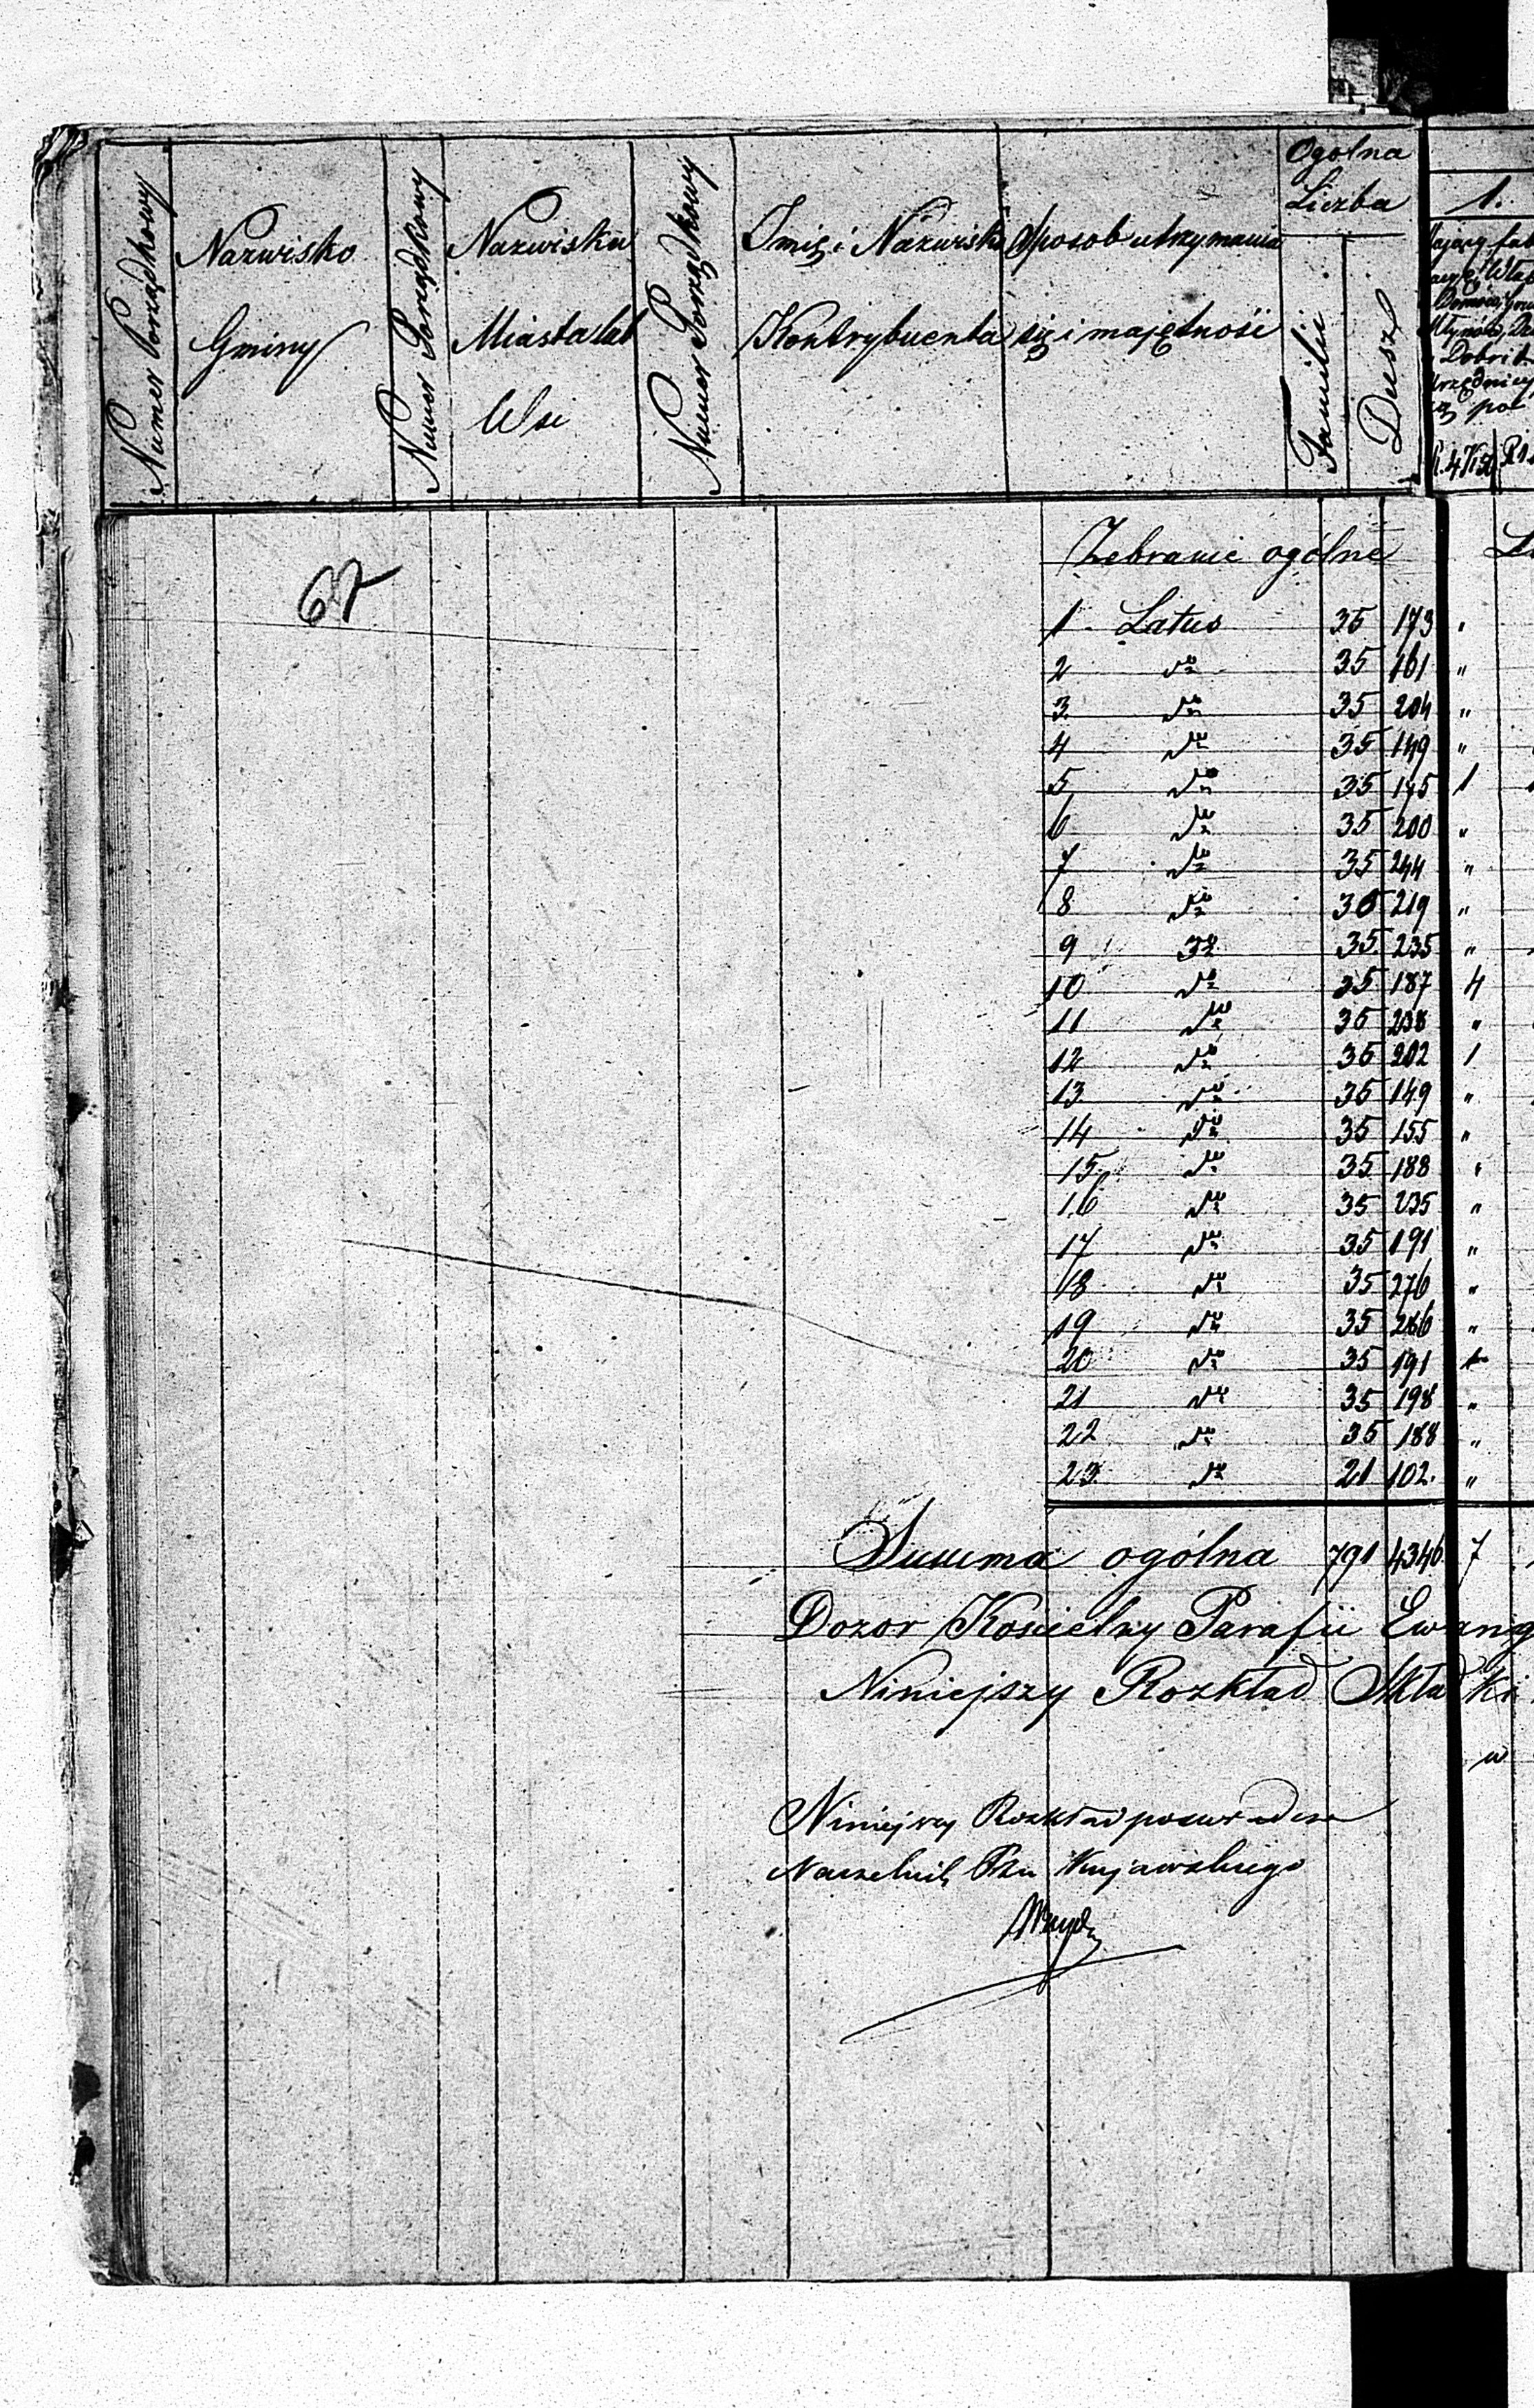 Numer Porządkowy
Nazwisko
Gminy
Numer Porządkowy
Nazwisko
Miasta lub
Wsi
Numer Porządkowy
Imię i Nazwisko
Kontrybuenta
Sposób utrzymania
się i majętności
Ogolna
Liczba
Familii
Dusz
1.
67
Zebranie ogólne
1 Latus 35 173 "
2 do 35 161 "
3 do 35 204 "
4 do 35 149 "
5 do 35 175 1
6 do 35 200 "
7 do 35 244 "
8 do 35 219 "
9 do 35 235 "
10 do 35 187 4
11 do 35 238 "
12 do 35 202 1
13 do 35 149 "
14 do 35 155 "
15 do 35 188 "
16 do 35 235 "
17 do 35 191 "
18 do 35 276 "
19 do 35 286 "
20 do 35 191 1
21 do 35 198 "
22 do 35 188 "
23 do 21 102. "
Summa ogólna 791 4346 7
Dozor Koscielny Parafii Ewang
Niniejszy Rozkład Składki
w
Niniejszy Rozkład poswiadcza
Naczelnik Ptu Kujawskiego